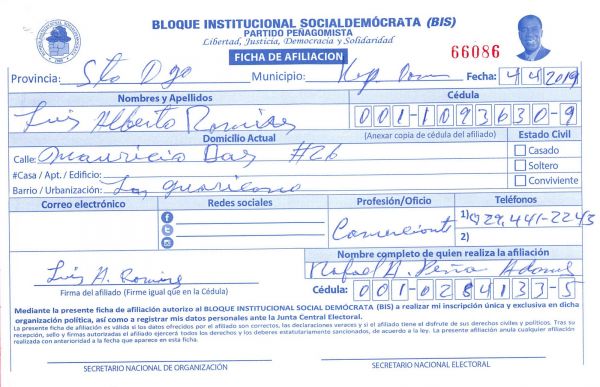 BLOQUE INSTITUCIONAL SOCIALDEMÓCRATA (BIS)
PARTIDO PEÑAGOMISTA
Libertad, Justicia, Democracia y Solidaridad
FICHA DE AFILIACION
66086
Provincia: Sto Dgo Municipio: Fecha: 4/4/2019
Nombres y Apellidos Cédula
Luis Alberto Ramirez 001-1093630-9
Domicilio Actual (Anexar copia de cédula del afiliado) Estado Civil
Calle: Mauricio Baez #26 Casado
#Casa / Apt. / Edificio: Soltero
Barrio / Urbanización: Los guaricano Conviviente
Correo electrónico Redes sociales Profesión/Oficio Teléfonos
Comerciante 1) 829,441-2243
2)
Nombre completo de quien realiza la afiliación
Luis A. Ramirez Rafael A. Peña
Firma del afiliado (Firme igual que en la Cédula) Cédula: 001-0284133-5
Mediante la presente ficha de afiliación autorizo al BLOQUE INSTITUCIONAL SOCIAL DEMÓCRATA (BIS) a realizar mi inscripción única y exclusiva en dicha
organización política, así como a registrar mis datos personales ante la Junta Central Electoral.
La presente ficha de afiliación es válida si los datos ofrecidos por el afiliado son correctos, las declaraciones veraces y si el afiliado tiene el disfrute de sus derechos civiles y políticos. Tras su
recepción, sello y firmas autorizadas el afiliado ejercerá todos los derechos y los deberes estatutariamente sancionados, de acuerdo a la ley. La presente afiliación anula cualquier afiliación
realizada con anterioridad a la fecha que aparece en esta ficha.
SECRETARIO NACIONAL DE ORGANIZACIÓN SECRETARIO NACIONAL ELECTORAL